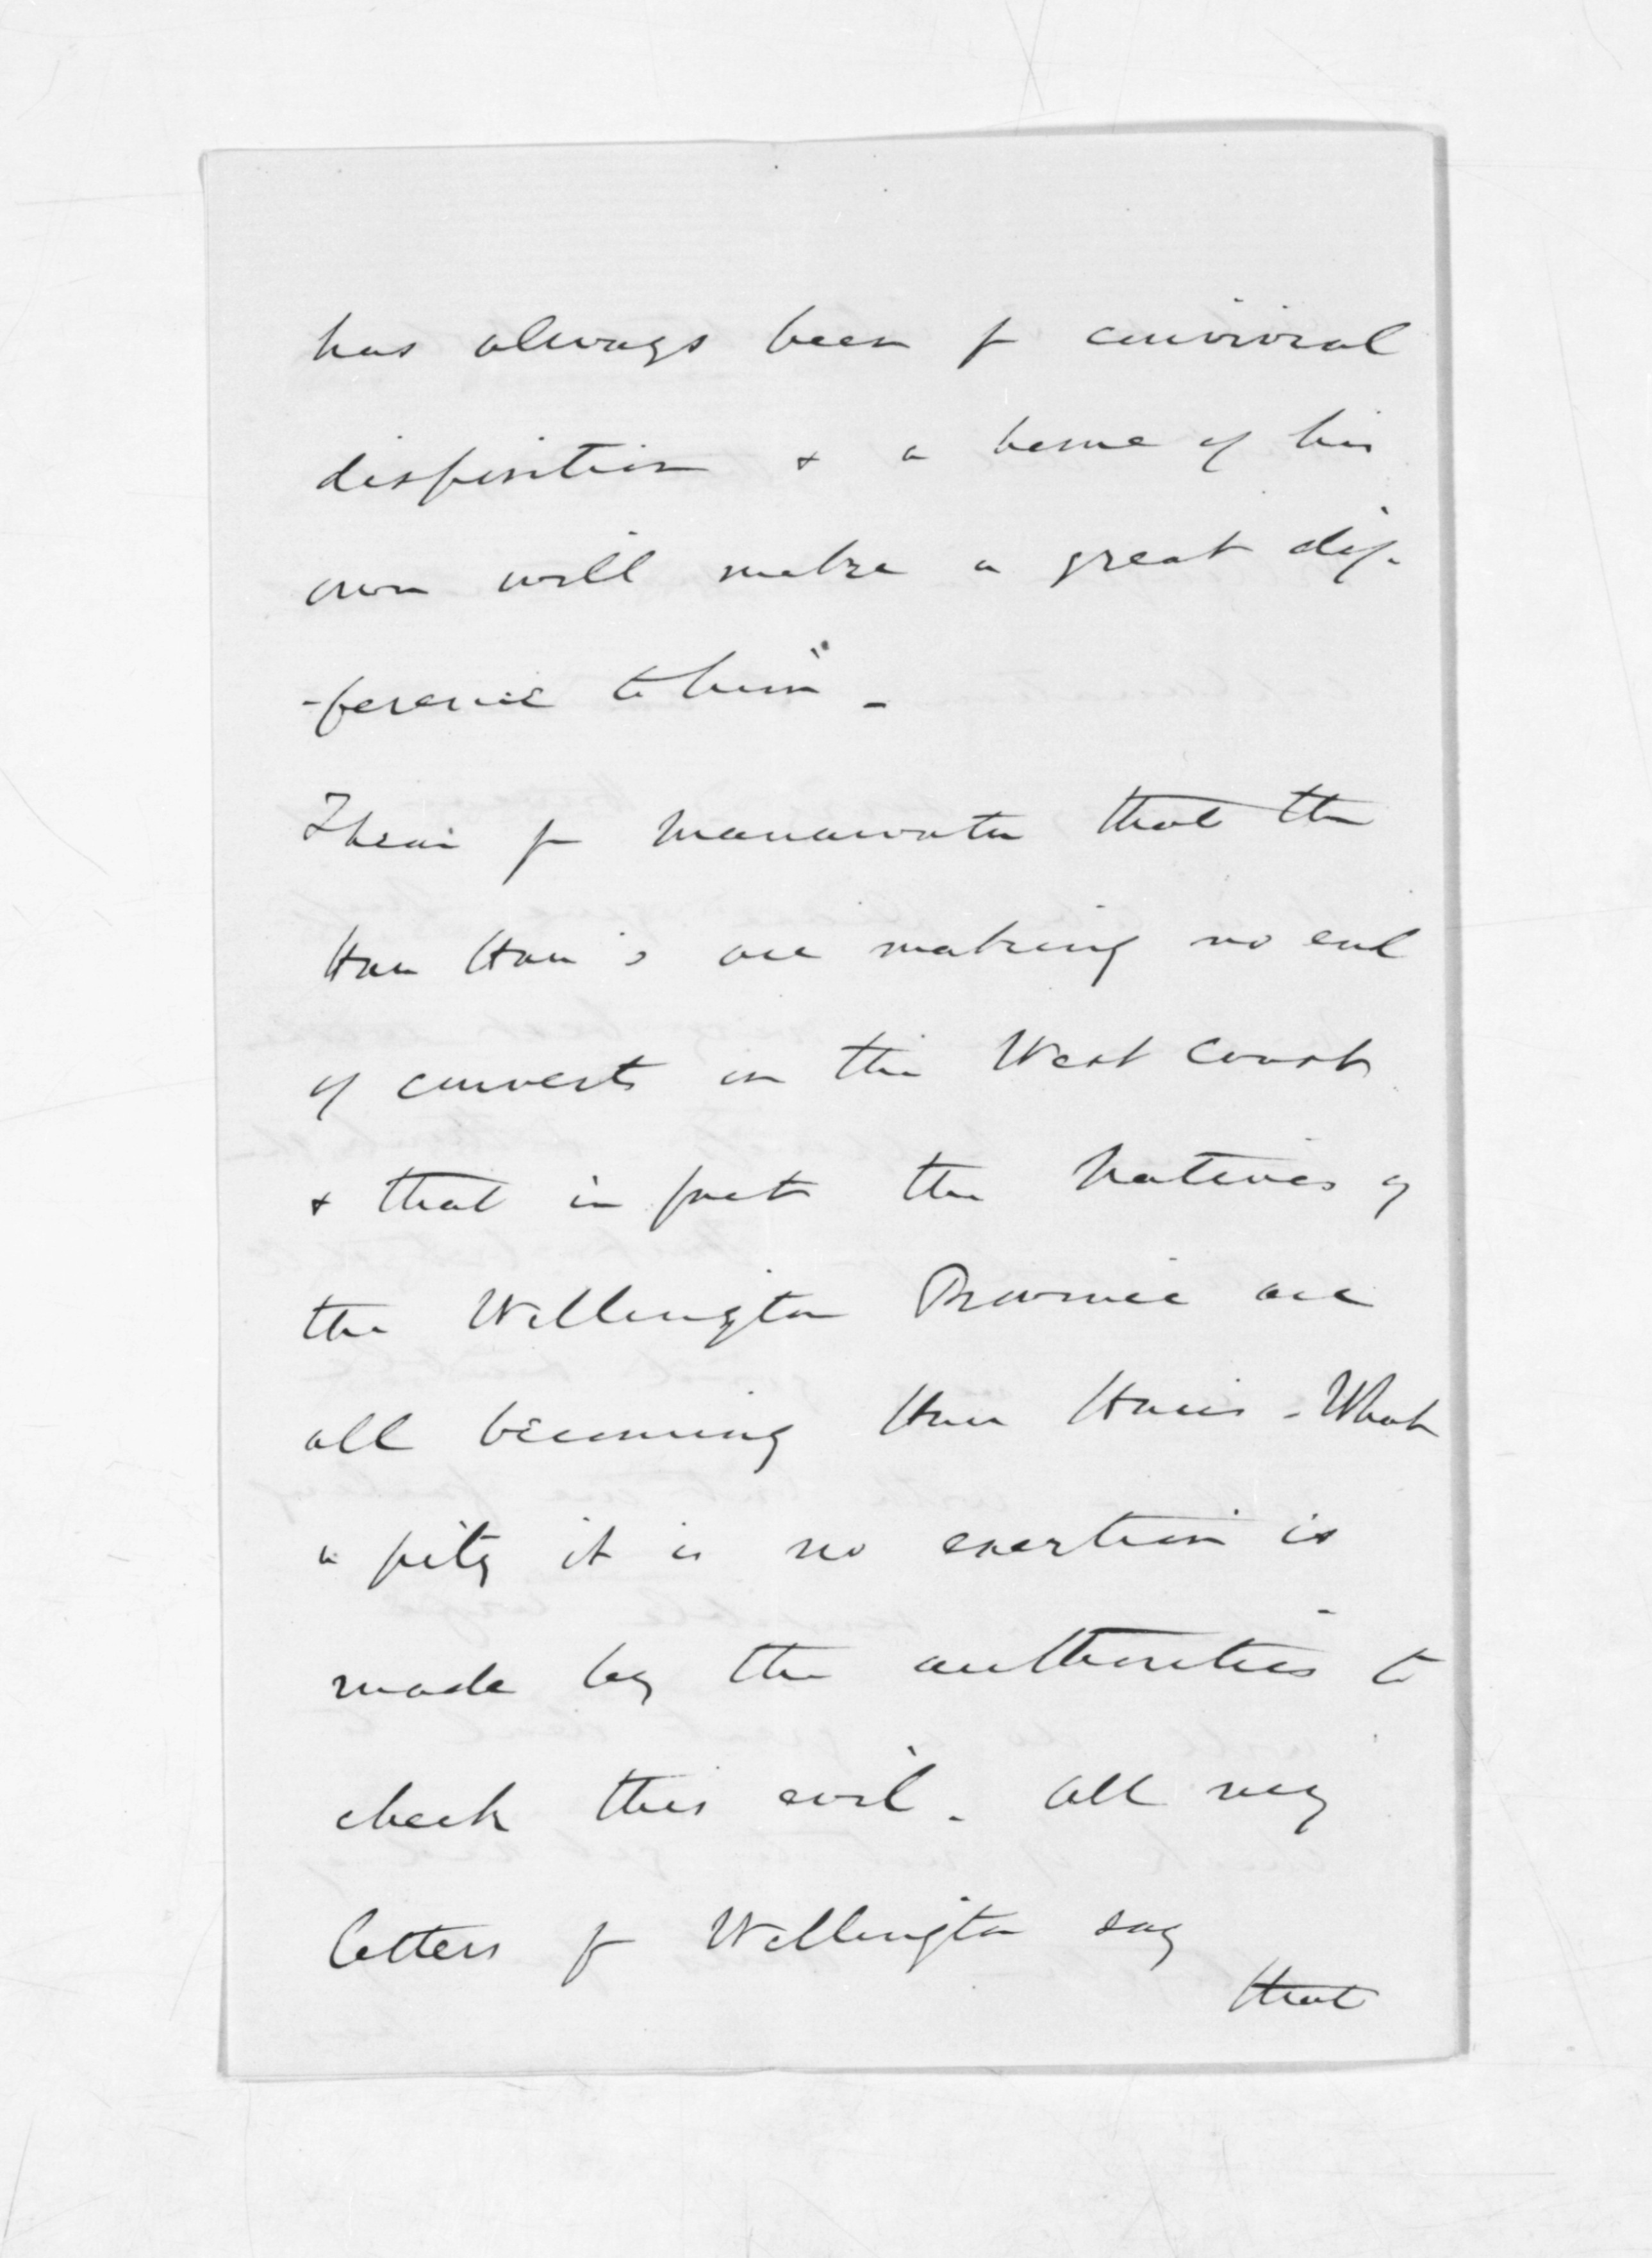 has always been f convivial
disposition & a home of his
own will make a great dif-
-ference to him" -
I hear f Manawatu that the
Hau Hau's are making no end
of converts on the West Coast
& that in fact the Natives of
the Wellington Province are
all becoming Hau Haus - What
a pity it is no exertion is
made by the authorities to
check this evil - all my
letters f Wellington say
that